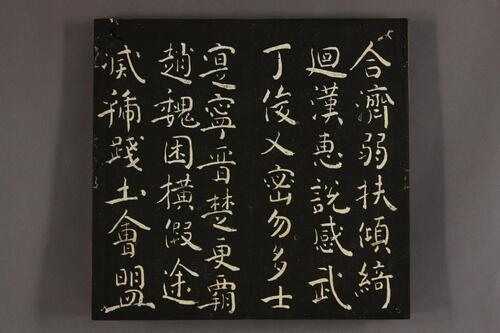 合濟弱扶傾綺
迴漢惠說感武
丁俊乂密勿多士
寔寧晉楚更霸
趙魏困橫假途
滅虢踐土會盟